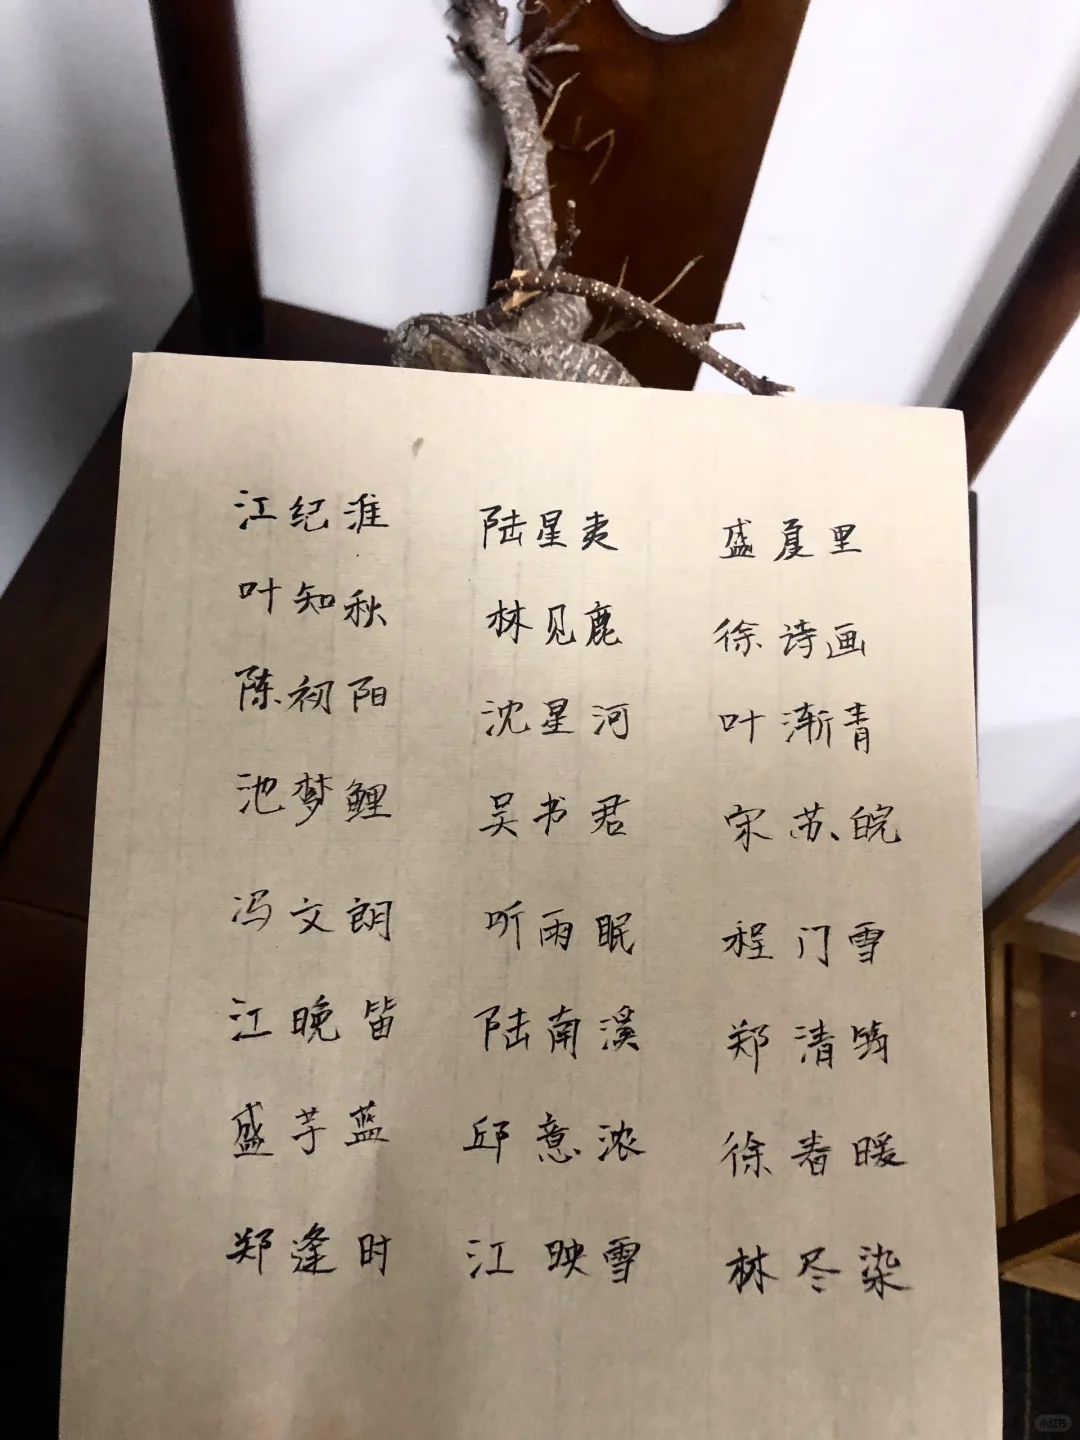 江纪淮 陆星夷 盛夏里
叶知秋 林见鹿 徐诗画
陈初阳 沈星河 叶渐青
池梦鲤 吴书君 宋苏皖
冯文朗 听雨眠 程门雪
江晚笛 陆南溪 郑清
盛芋蓝 邱意浓 徐春暖
郑逢时 江映雪 林尽染